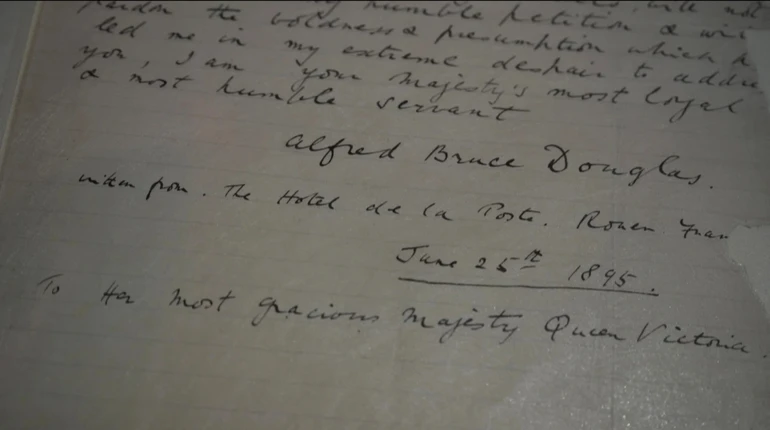 humble petition & will not
pardon the boldness & presumption which
led me in my extreme despair to
you, I am your Majesty's most loyal
& most humble servant
Alfred Bruce Douglas.
written from. The Hotel de la Poste. Rouen
June 25th 1895.
To Her most gracious Majesty Queen Victoria.